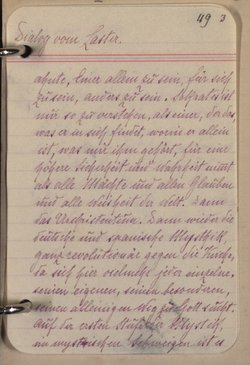 49 3
Dialog vom Laster.
ahnte, Einer allem zu sein, für sich
zu sein, anders zu sein. Sokrates ist
nur so zu verstehen, als einer, der das,
was er in sich findet, worin er allein
ist, was nur ihm gehört, für eine
höhere Sicherheit und Wahrheit nimmt
als alle Mächte und allen Glauben
und alle Weisheit der Welt. Dann
das Urchristentum. Dann wieder die
deutsche und spanische Mystik,
ganz revolutionär gegen die Kirche,
da sich hier vielmehr jeder einzelne
seinen eigenen, seinen besonderen,
seinen alleinigen Weg zu Gott sucht.
Auf der ersten Stufe der Mystik,
im mystischen Schweigen ist es